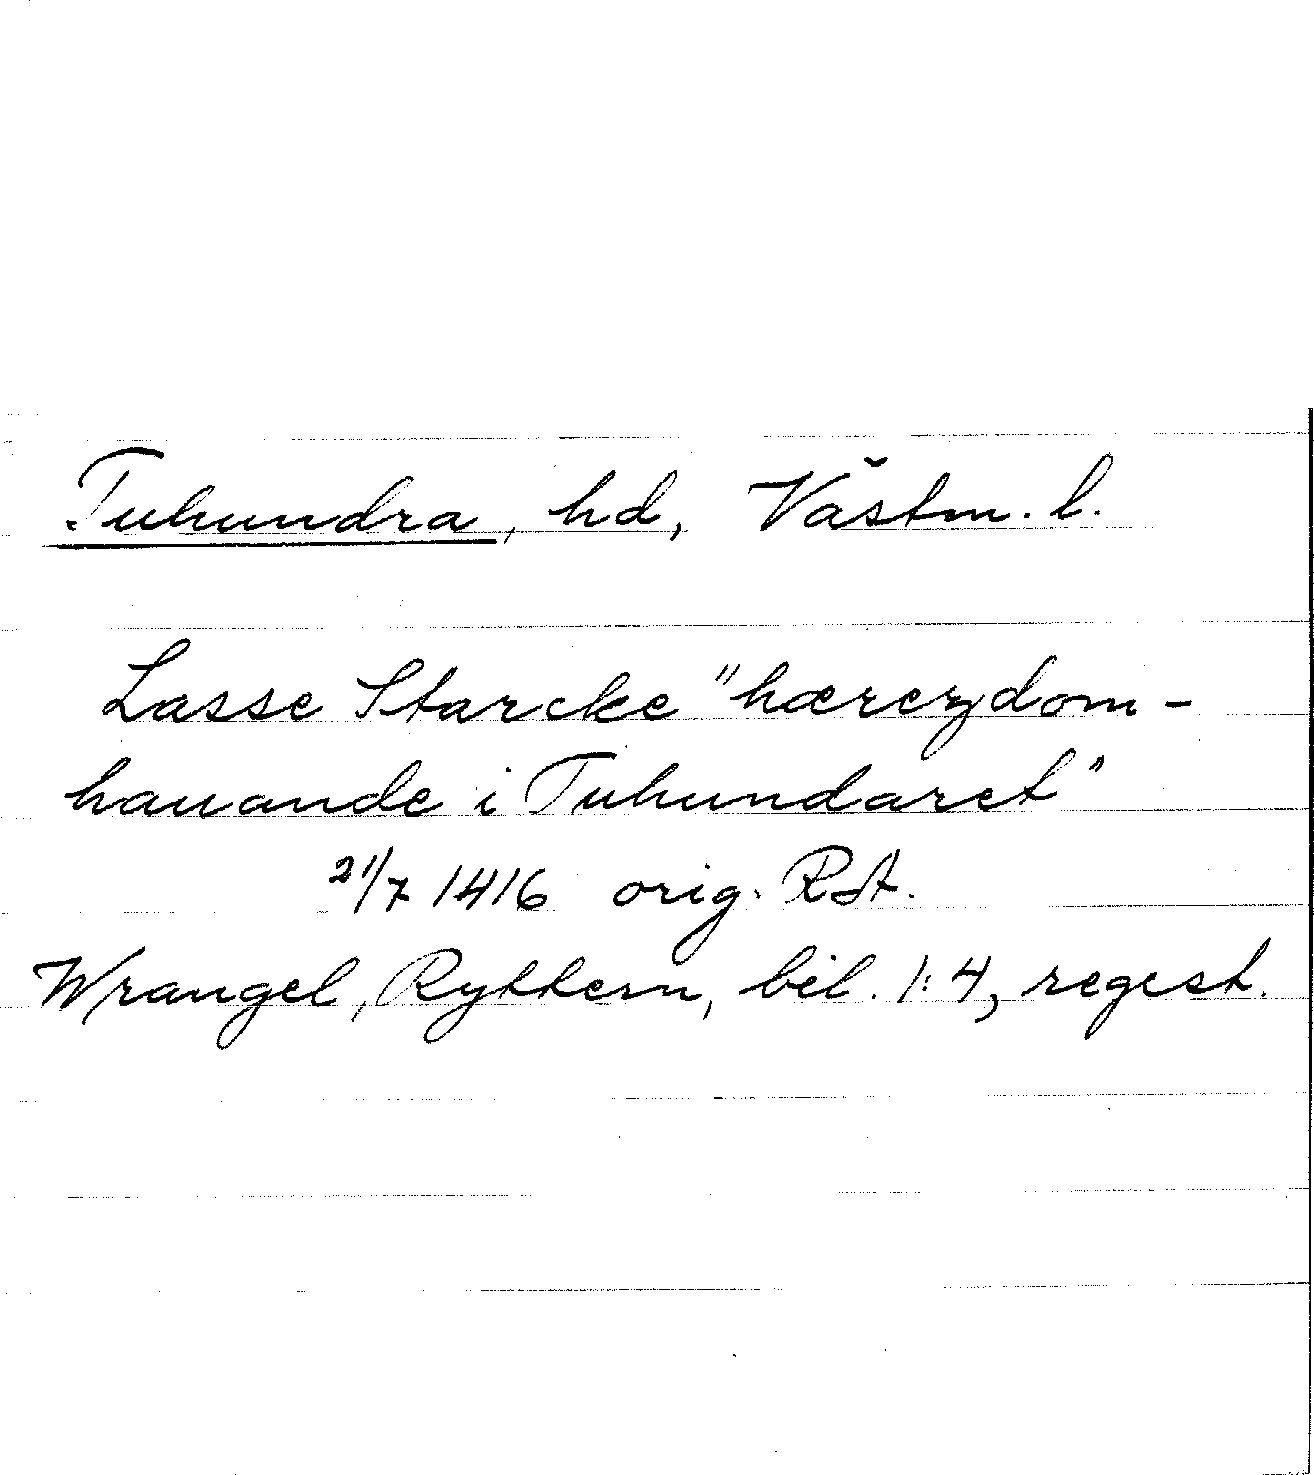 Tuhundra, hd, Västm. l.
Lasse Starcke "hærezdom-
hauande i Tuhundaret"
21/7 1416 orig. RA.
Wrangel, Ryttern, bil. 1:4, regest.